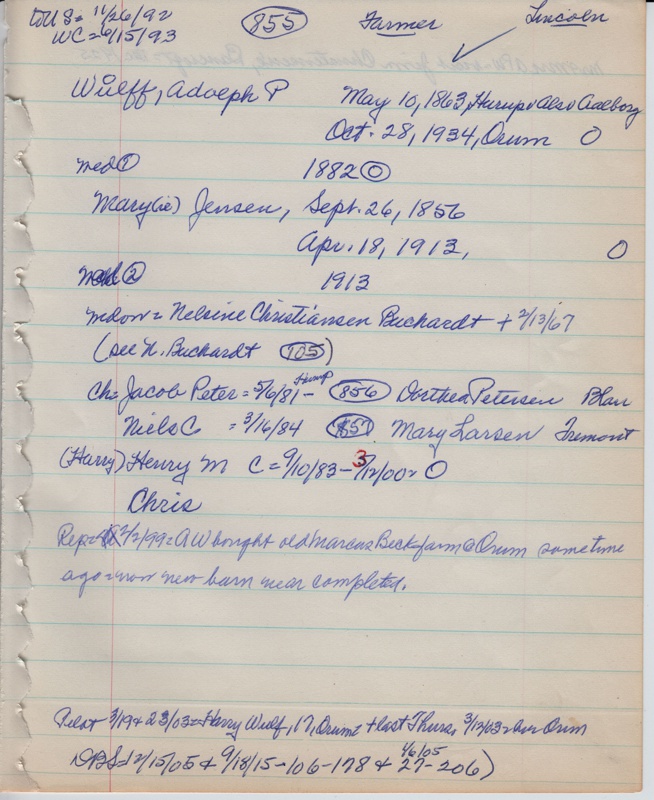 WUS = 11/26/92 855 Farmer Lincoln
WC = 6/15/93
Wulff, Adolph P May 10, 1863, Hurup, Als, Aalborg
Oct. 28, 1934, Orum O
med ① 1882 O
Mary(ie) Jensen, Sept. 26, 1856
Apr. 18, 1913, O
med ② 1913
mdow = Nelsine Christiansen Buchardt + 2/13/67
(see N. Buchardt 705)
Ch = Jacob Peter = 5/6/81 - Hurup 856 Dorthea Petersen Blair
Niels C = 3/16/84 857 Mary Larsen Fremont
(Harry) Henry M C = 9/10/83 - 3/12/00 = O
Chris
Rep = 2/2/99 = AW bought old Marcus Beck farm @ Orum sometime
ago = now new barn near completed.
Pilot 3/19 & 23/03 = Harry Wulf, 17, Orum = + last Thurs, 3/12/03 = Orum
DBS = 12/15/05 & 9/18/15 - 106 - 178 & 4/6/05 27 - 206)